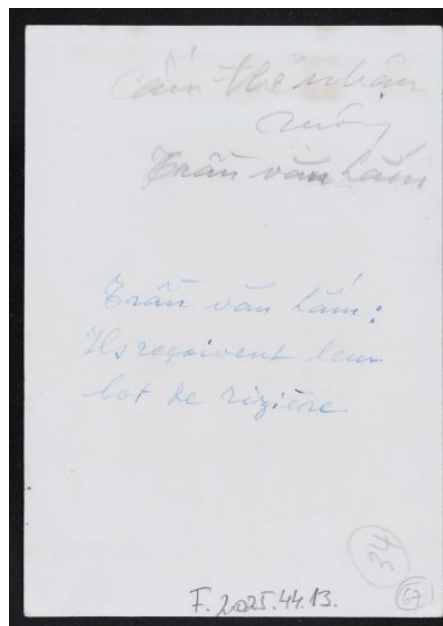 Cắm thẻ nhận
ruộng
Trần văn Lắm
Trần văn Lắm:
Ils reçoivent leur
lot de rizière
34
67
F. 2025.44.13.